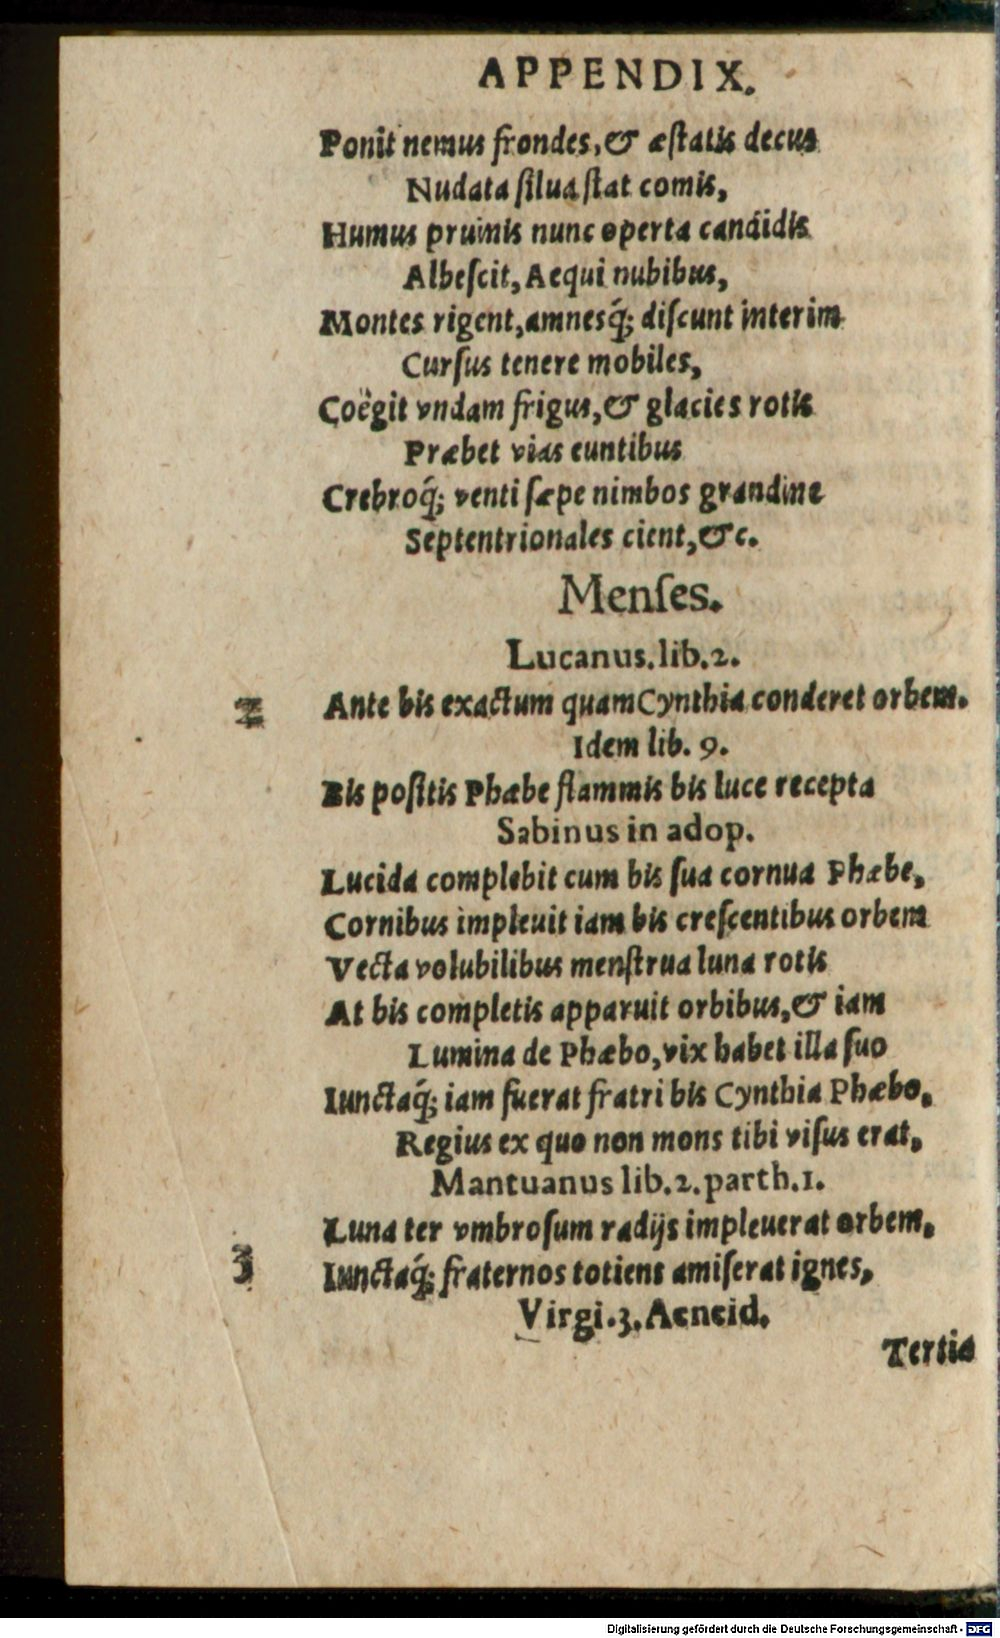 APPENDIX.
Ponit nemus frondes, & æſtatis decus
Nudata ſilua ſtat comis,
Humus pruinis nunc operta candidis
Albeſcit, Aequi nubibus,
Montes rigent, amnesq́; diſcunt interim
Curſus tenere mobiles,
Coëgit vndam frigus, & glacies rotis
Præbet vias euntibus
Crebroq́; venti ſæpe nimbos grandine
Septentrionales cient, &c.
Menſes.
Lucanus. lib. 2.
2 Ante bis exactum quam Cynthia conderet orbem.
Idem lib. 9.
Bis poſitis Phœbe flammis bis luce recepta
Sabinus in adop.
Lucida complebit cum bis ſua cornua Phœbe,
Cornibus impleuit iam bis creſcentibus orbem
Vecta volubilibus menſtrua luna rotis
At bis completis apparuit orbibus, & iam
Lumina de Phœbo, vix habet illa ſuo
Iunctaq́; iam fuerat fratri bis Cynthia Phœbo.
Regius ex quo non mons tibi viſus erat,
Mantuanus lib. 2. parth. 1.
3 Luna ter vmbroſum radijs impleuerat orbem.
Iunctaq́; fraternos totiens amiſerat ignes,
Virgi. 3. Aeneid.
Tertia
Digitalisierung gefördert durch die Deutsche Forschungsgemeinschaft - DFG